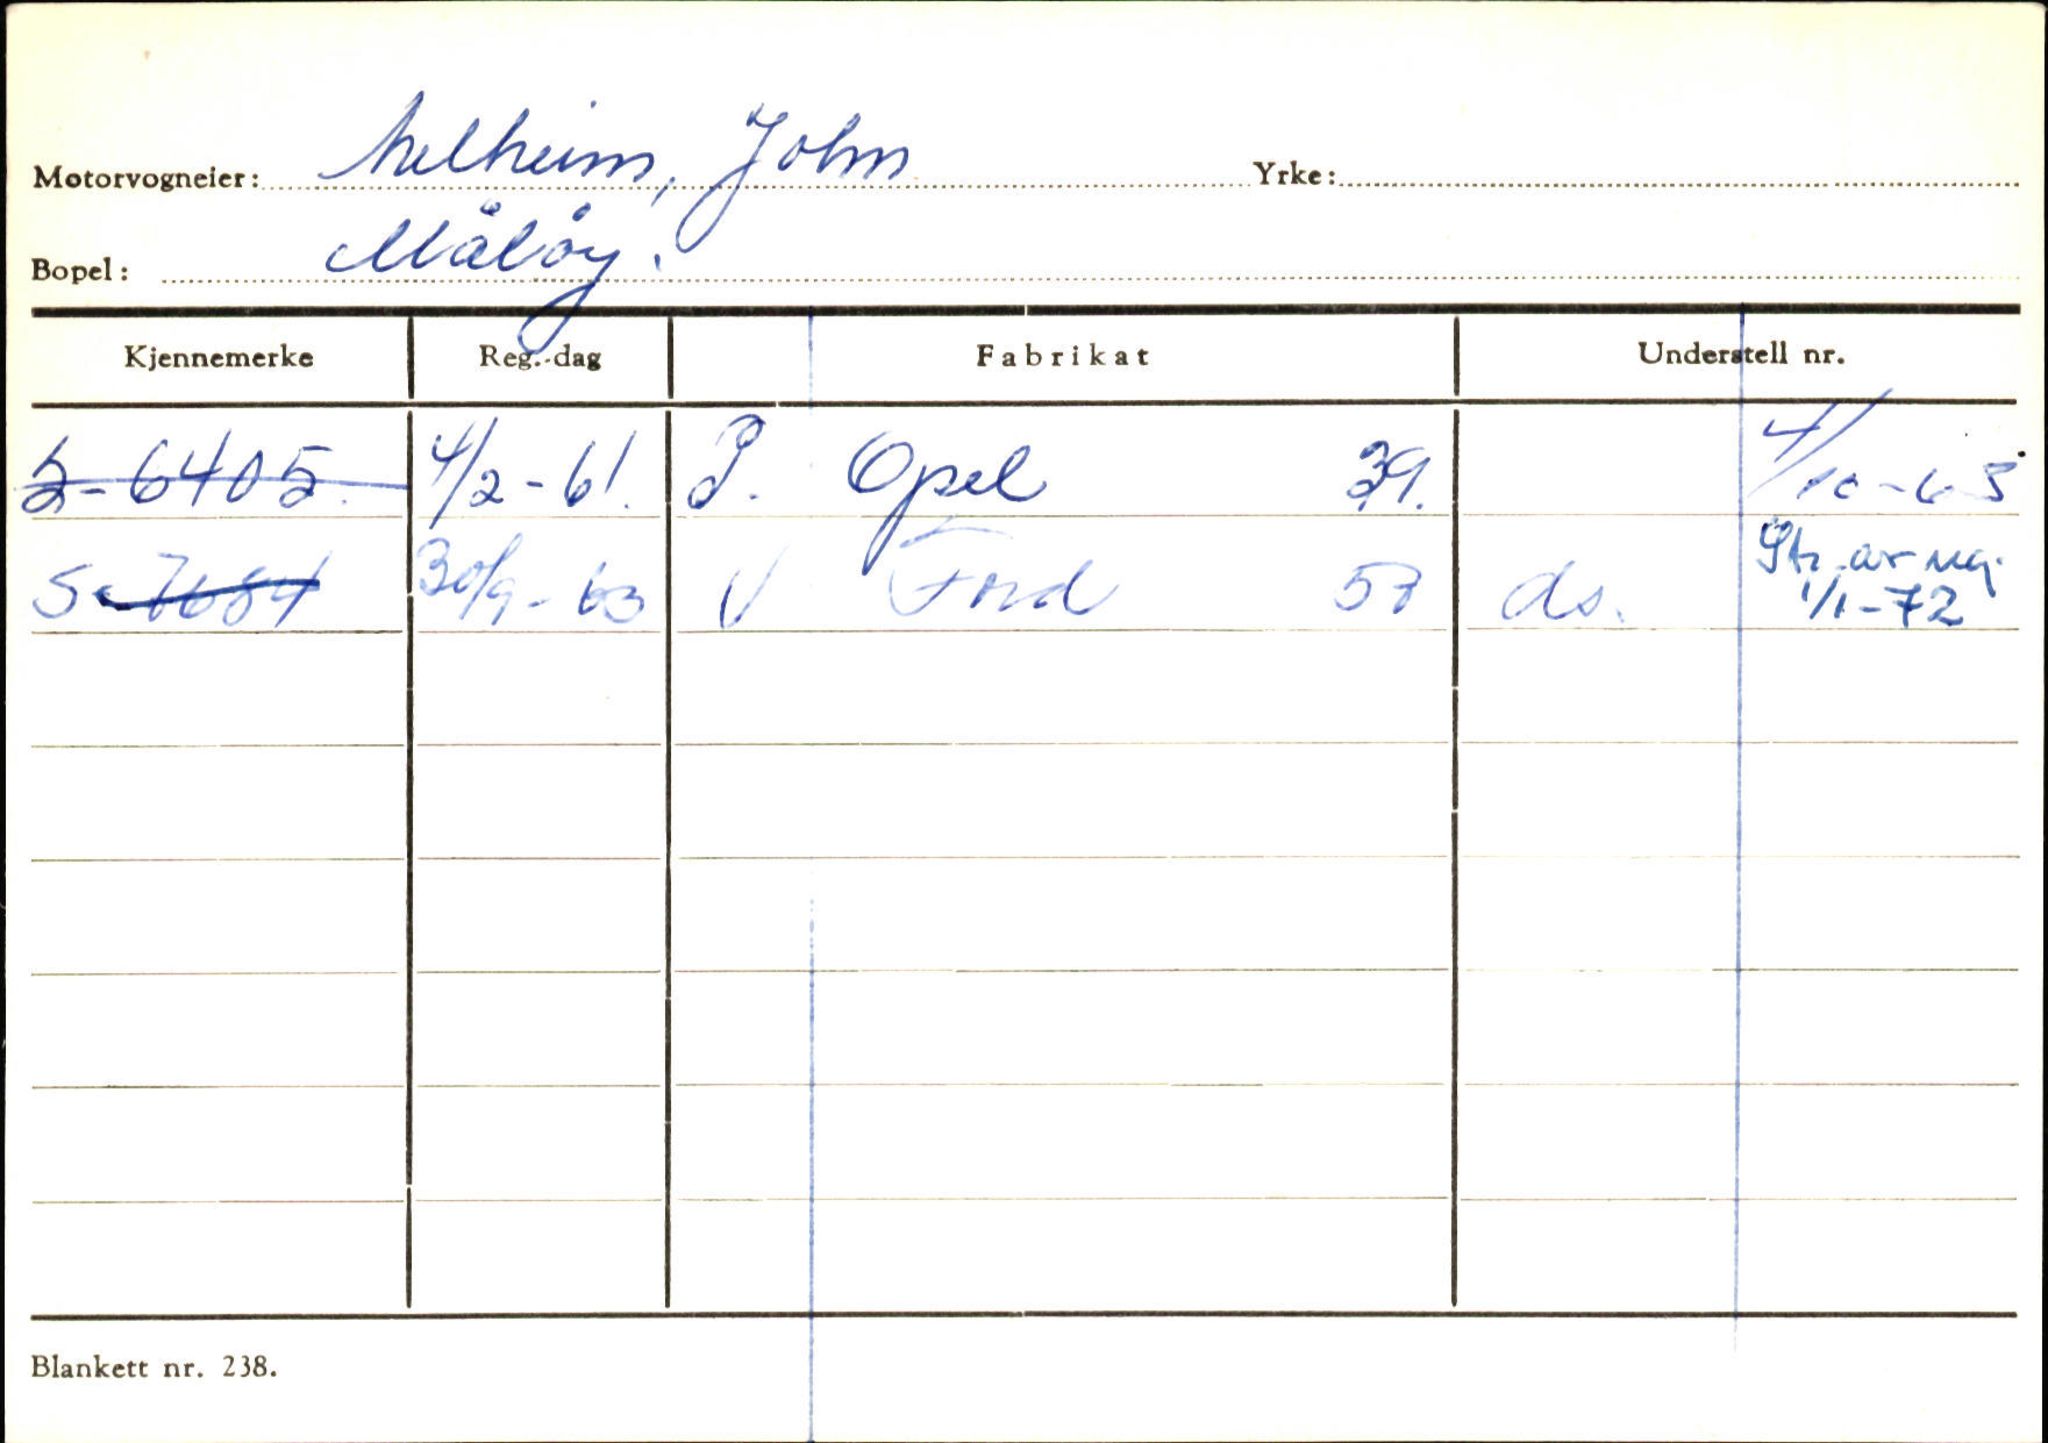 Motorvogneier: Melheim, John Yrke:
Bopel: Måløy.
Kjennemerke Reg.-dag Fabrikat Understell nr.
S-6405. 4/2-61. P. Opel 39. 4/10-63
S-7684 30/9-63 V Ford 57 ds. Str. av reg. 1/1-72
Blankett nr. 238.